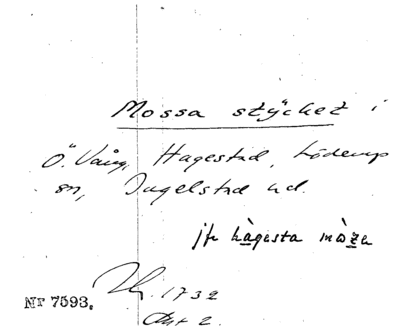 Mossa stÿcket i
Ö. Vång, Hagestad, Löderup
sn, Ingelstad hd.
jfr hàgesta mòza
Nr 7593.
1732
Akt 2.